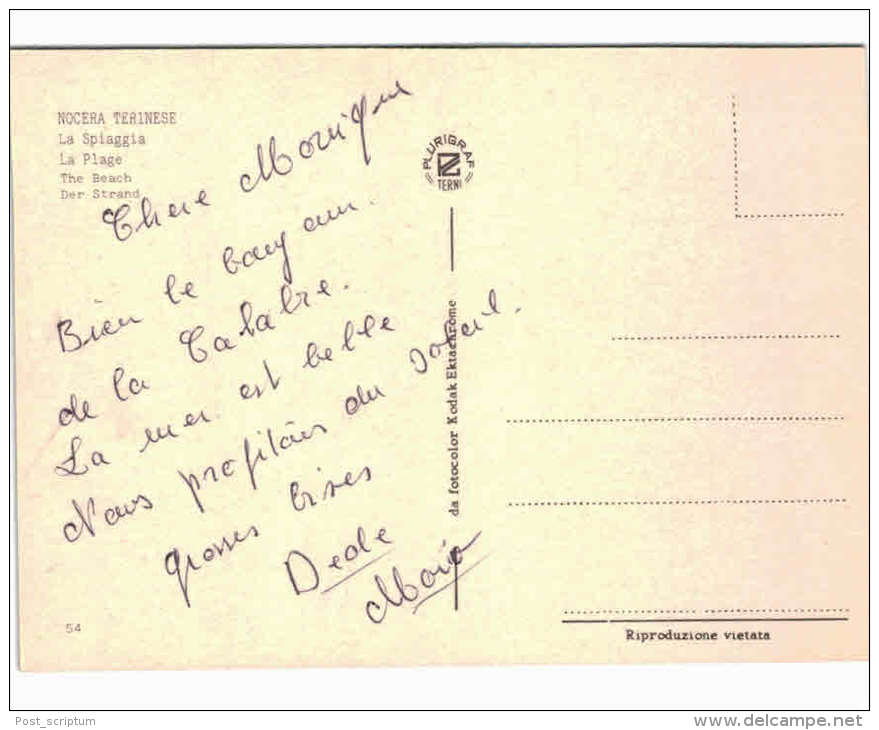 NOCERA TERINESE
La Spiaggia
La Plage
The Beach
Der Strand
Chere Monique
Bien le bonjour
de la Calabre.
La mer est belle
Nous profitons du soleil.
grosses bises
Dede
54
PLURIGRAF
TERNI
da fotocolor Kodak Ektachrome
Riproduzione vietata
Post_scriptum
www.delcampe.net